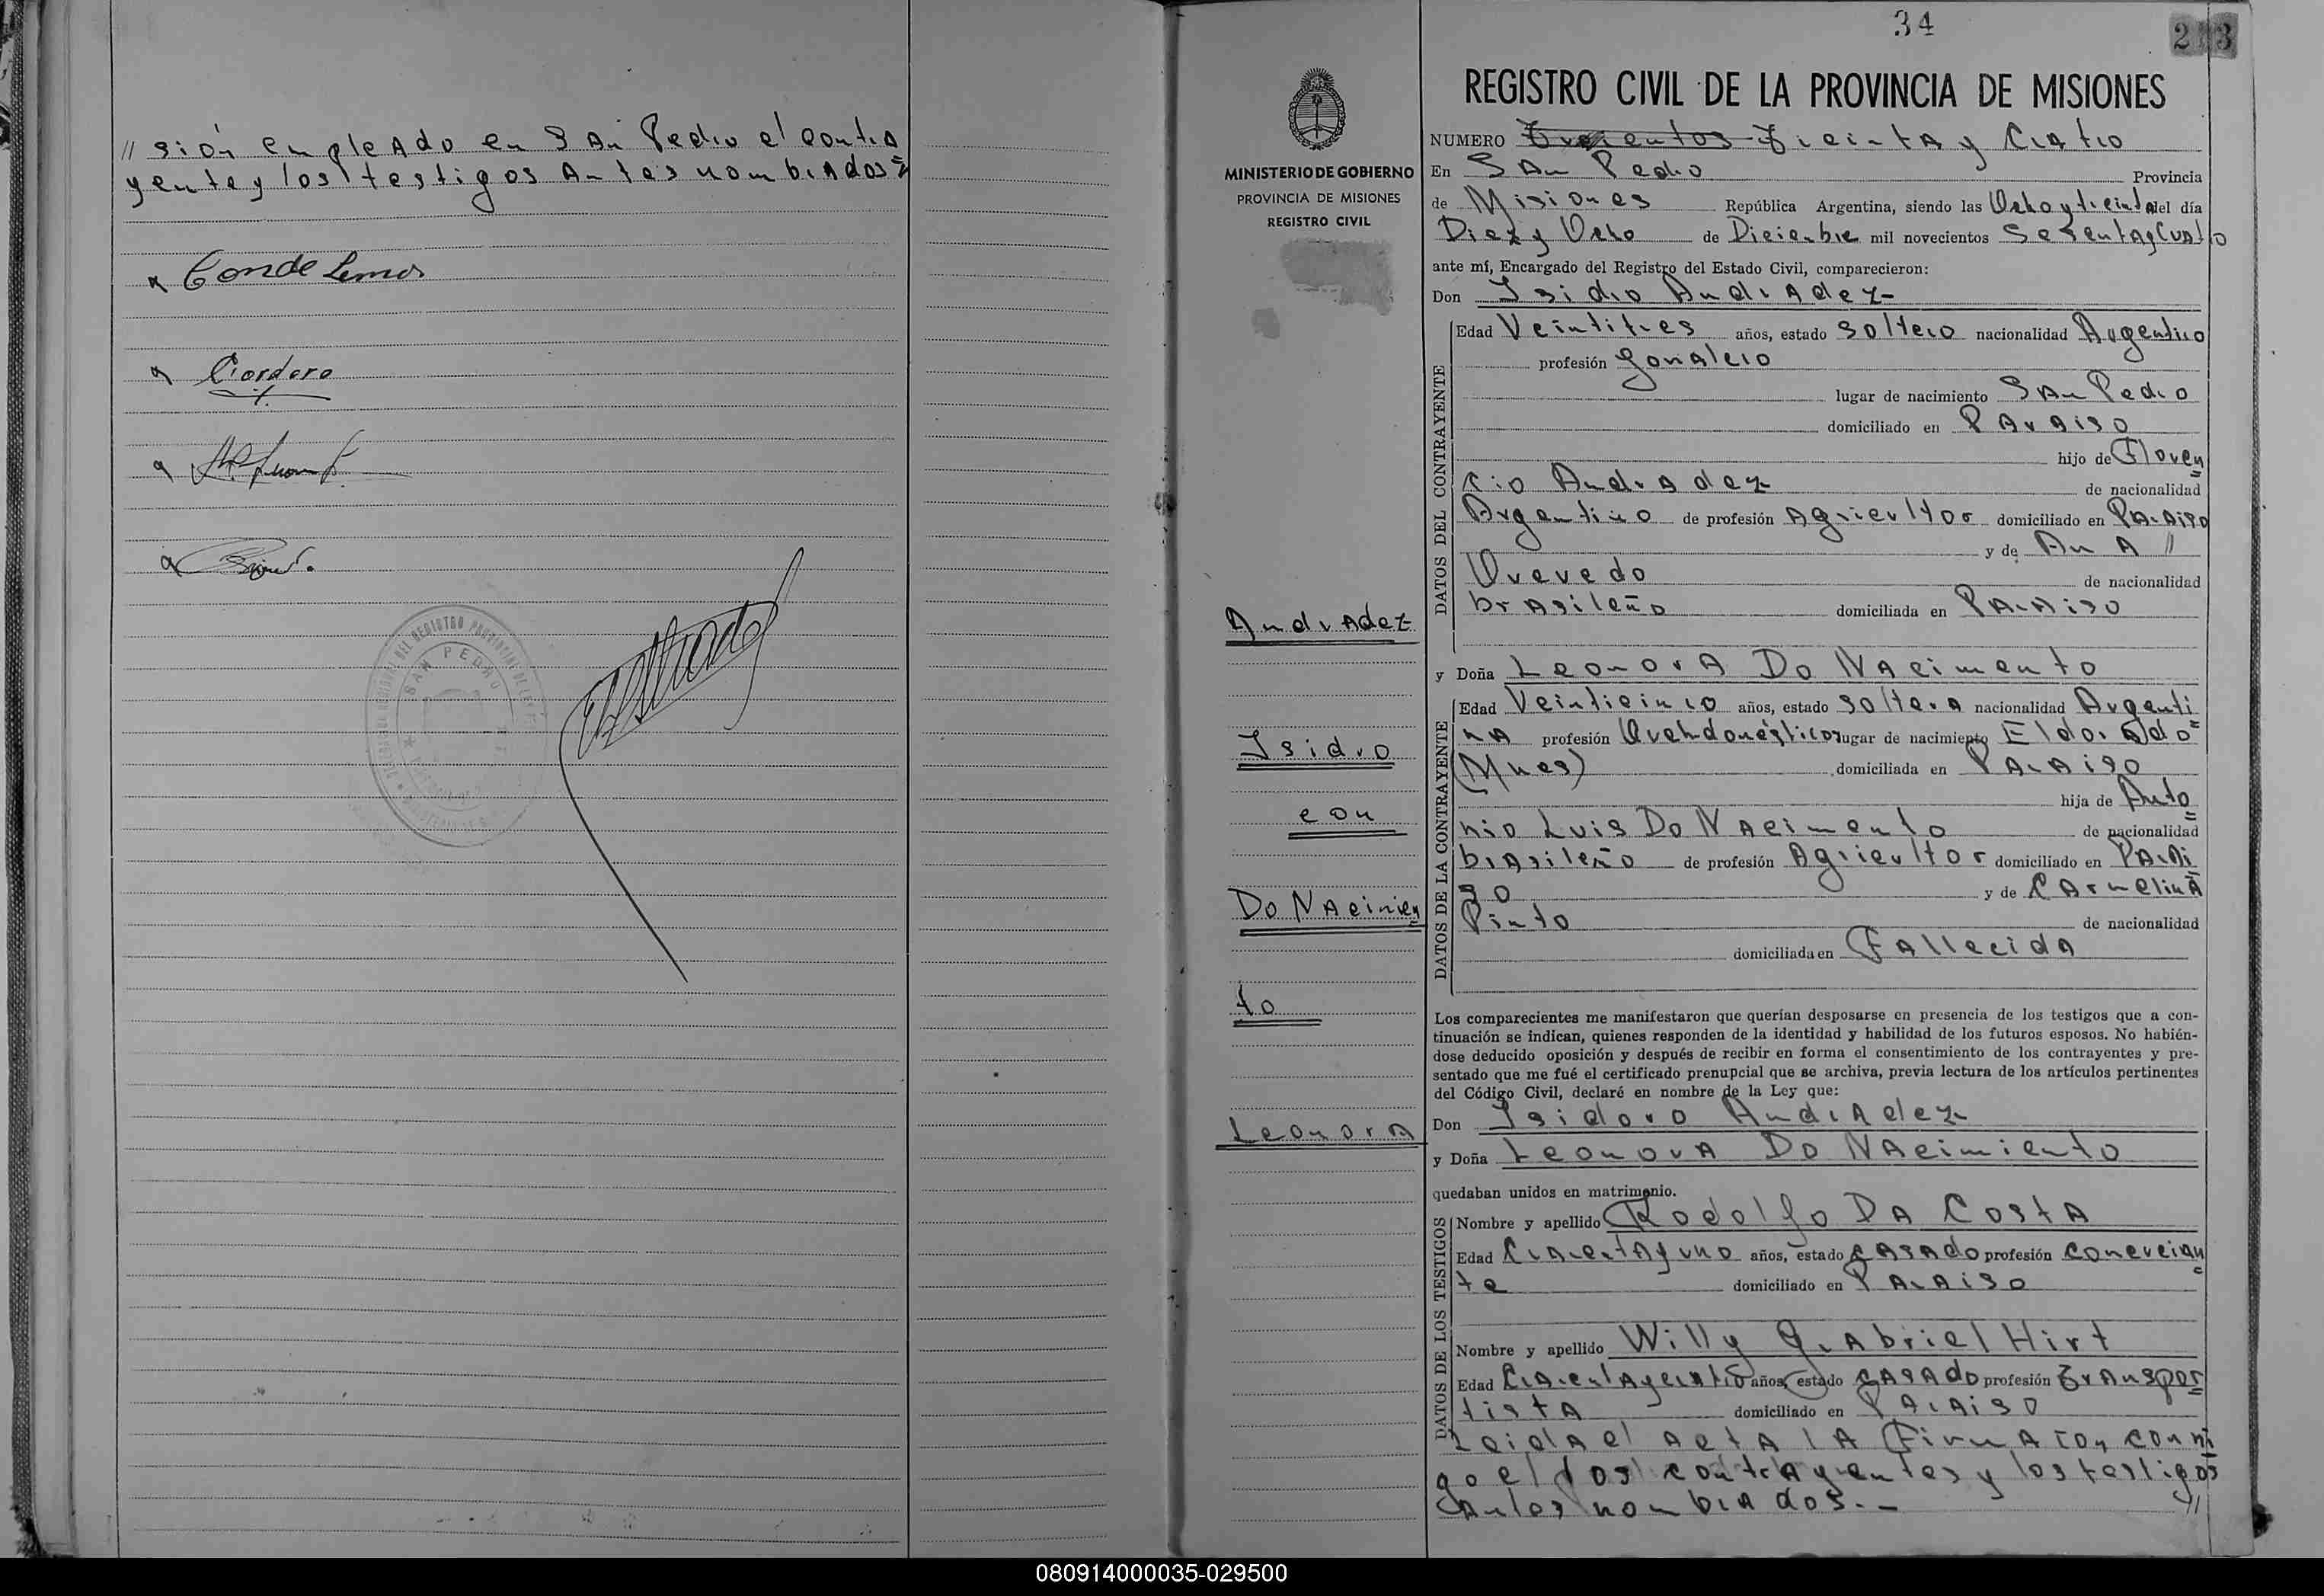 // sión empleado en San Pedro el contra
yente y los testigos antes nombrados=
Conde Lemos
Cordero
SAN PEDRO
34
213
REGISTRO CIVIL DE LA PROVINCIA DE MISIONES
MINISTERIO DE GOBIERNO
PROVINCIA DE MISIONES
REGISTRO CIVIL
Andradez
Isidro
con
Do Nacimien
to
Leonora
NUMERO Treinta y Cuatro
En San Pedro Provincia
de Misiones República Argentina, siendo las Ocho y treinta del día
Diez y Ocho de Diciembre mil novecientos Sesenta y Cuatro
ante mí, Encargado del Registro del Estado Civil, comparecieron:
Don Isidro Andradez
DATOS DEL CONTRAYENTE
Edad Veintitres años, estado soltero nacionalidad Argentino
profesión Jornalero
lugar de nacimiento San Pedro
domiciliado en Paraiso
hijo de Floren
cio Andradez de nacionalidad
Argentino de profesión Agricultor domiciliado en Paraiso
y de Ana //
Quevedo de nacionalidad
brasileña domiciliada en Paraiso
y Doña Leonora Do Nacimento
DATOS DE LA CONTRAYENTE
Edad Veinticinco años, estado soltera nacionalidad Argenti
na profesión Quehdomésticos lugar de nacimiento Eldorado
(Mnes) domiciliada en Paraiso
hija de Anto
nio Luis Do Nacimento de nacionalidad
brasileño de profesión Agricultor domiciliado en Parai
so y de Carmelina
Pinto de nacionalidad
domiciliada en Fallecida
Los comparecientes me manifestaron que querían desposarse en presencia de los testigos que a con-
tinuación se indican, quienes responden de la identidad y habilidad de los futuros esposos. No habién-
dose deducido oposición y después de recibir en forma el consentimiento de los contrayentes y pre-
sentado que me fué el certificado prenupcial que se archiva, previa lectura de los artículos pertinentes
del Código Civil, declaré en nombre de la Ley que:
Don Isidoro Andradez
y Doña Leonora Do Nacimiento
quedaban unidos en matrimonio.
DATOS DE LOS TESTIGOS
Nombre y apellido Rodolfo Da Costa
Edad Cuarenta y uno años, estado casado profesión comercian
te domiciliado en Paraiso
Nombre y apellido Willy Gabriel Hirt
Edad Cuarenta y cuatro años, estado casado profesión Transpor
tista domiciliado en Paraiso
Leida el acta la Firmaron conmi
go el los contrayentes y los testigos
antes nombrados.- //
080914000035-029500